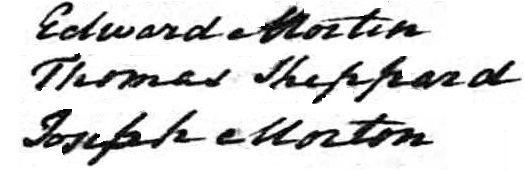 Edward Mortin
Thomas Sheppard
Joseph Morton